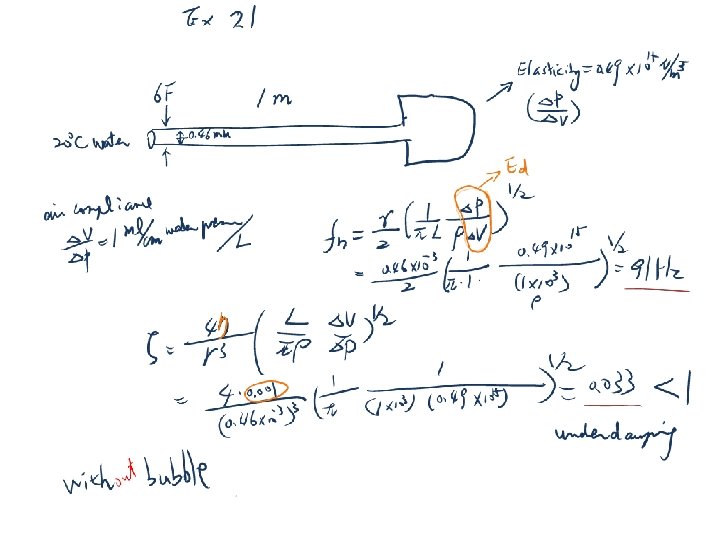 Ex 21
Elasticity = 0.49 × 10^15 N/m^5
(ΔP/ΔV)
6F
1 m
0.46 mm
20°C water
Ed
air compliance
ΔV/ΔP = 1 ml/cm water pressure/L
fn = r/2 (1/πL ΔP/ρΔV)^1/2
= 0.46×10^-3/2 (1/π·1 · 0.49×10^15/(1×10^3))^1/2 = 91 Hz
ρ
ζ = 4η/r^3 (L/πρ ΔV/ΔP)^1/2
= 4·0.001/(0.46×10^-3)^3 (1/π 1/(1×10^3)(0.49×10^15))^1/2 = 0.033 < 1
underdamping
without bubble